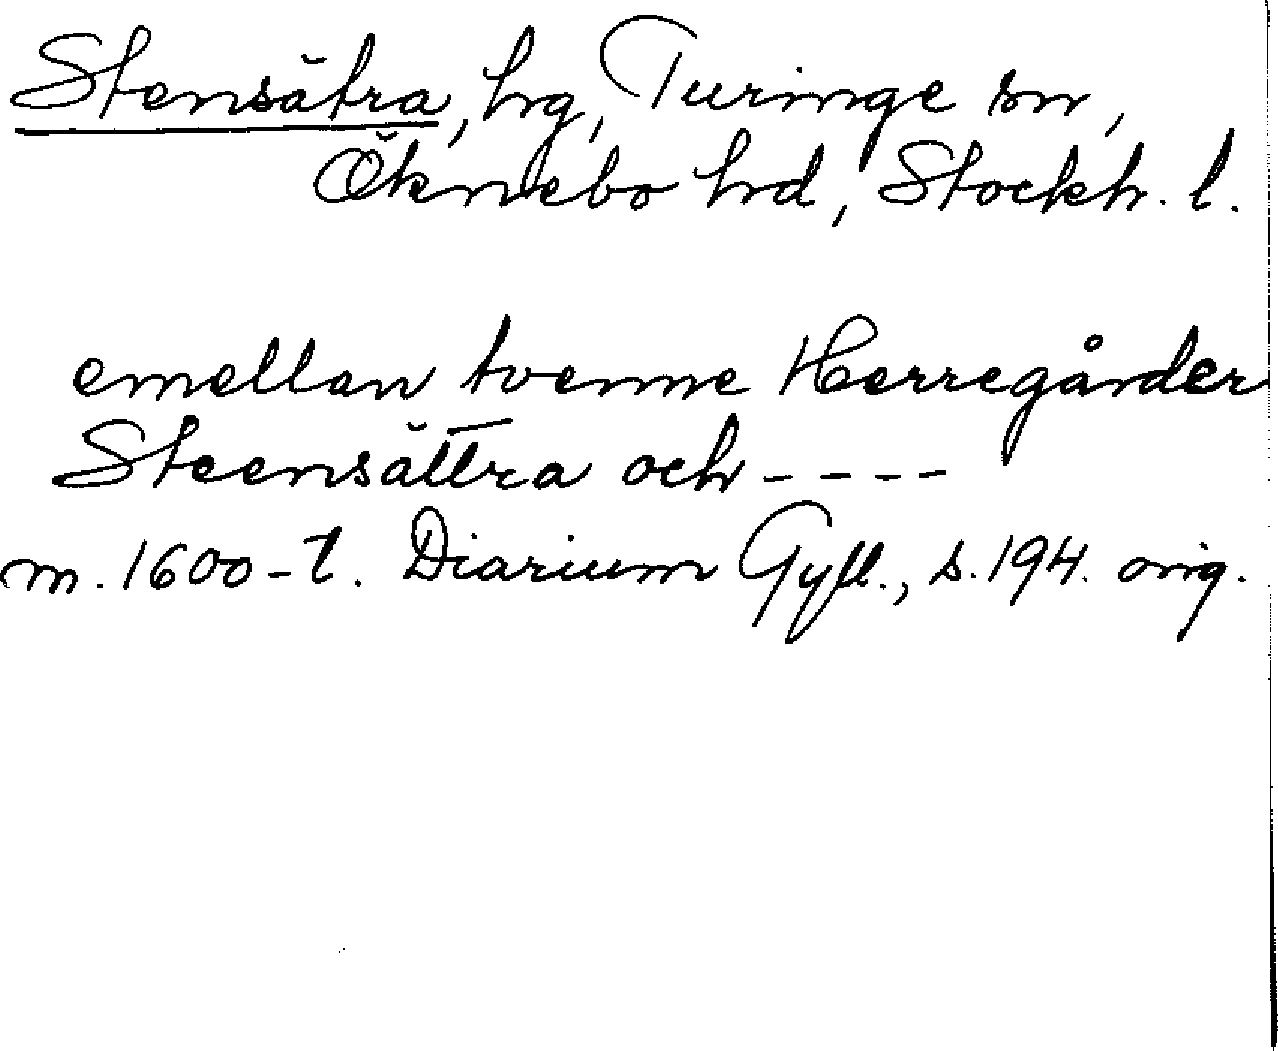 Stensätra, hg, Turinge sn,
Öknebo hd, Stockh. l.
emellan tvenne Herregårder
Steensättra och - - - -
m. 1600-t. Diarium Gyll., s. 194. orig.